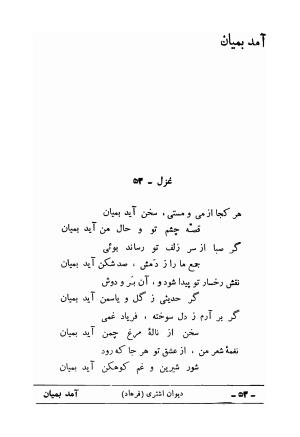 آمد بمیان
غزل - ۵۳
هر کجا از می و مستی، سخن آید بمیان
قصّه چشم تو و حال من آید بمیان
گر صبا از سر زلف تو رساند بوئی
جمع ما را ز دَمش، صد شکن آید بمیان
نقش رخسار تو پیدا شود و، آن بَر و دوش
گر حدیثی ز گل و یاسمن آید بمیان
گر بر آرم ز دل سوخته، فریاد غمی
سخن از نالهٔ مرغ چمن آید بمیان
نغمهٔ شعر من، از عشق تو هر جا که رود
شور شیرین و غم کوهکن آید بمیان
- ۵۳ - دیوان اشتری (فرهاد) آمد بمیان